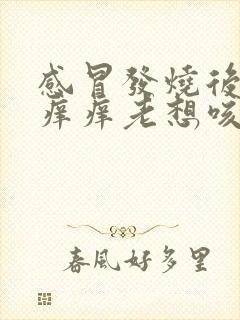 感冒發燒後
痒痒老想咳
春風好多里